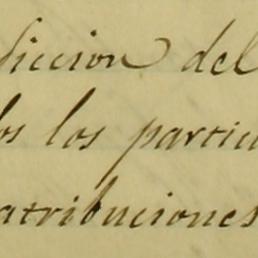 diccion del
los los particu
atribuciones